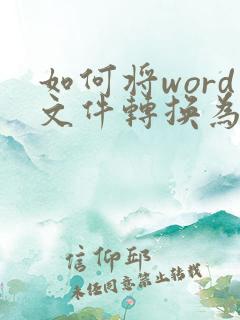 如何将word
文件轉換為
信仰邱
未经同意禁止转载